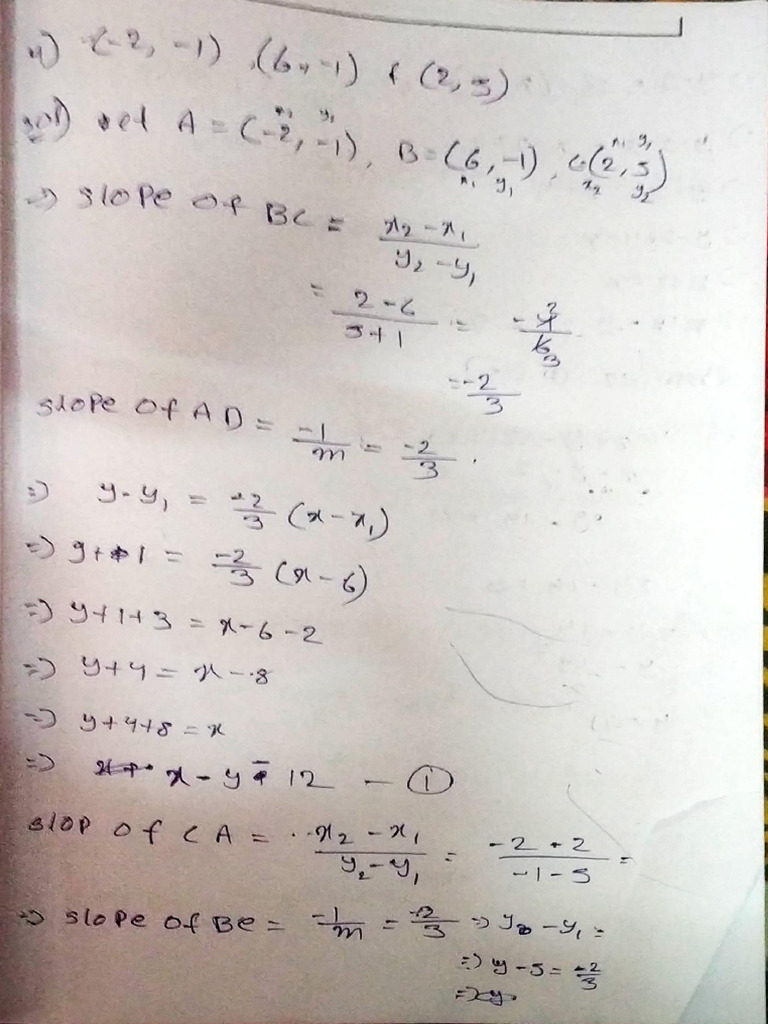 4) (-2, -1), (6, -1) & (2, 5)
sol) let A = (-2, -1), B = (6, -1), C(2, 5)
x₁ y₁ x₁ y₁ x₁ y₁ x₂ y₂
=> slope of BC = x₂ - x₁ / y₂ - y₁
= 2 - 6 / 5 + 1 = -4 / 6
= -2 / 3
slope of AD = -1 / m = -2 / 3 .
=> y - y₁ = -2/3 (x - x₁)
=> y + 1 = -2/3 (x - 6)
=> y + 1 + 3 = x - 6 - 2
=> y + 4 = x - 8
=> y + 4 + 8 = x
=> x - y = 12 — ①
slop of CA = x₂ - x₁ / y₂ - y₁ = -2 + 2 / -1 - 5 =
=> slope of Be = -1 / m = -2 / 3 => y - y₁ =
=> y - 5 = -2 / 3
=> y